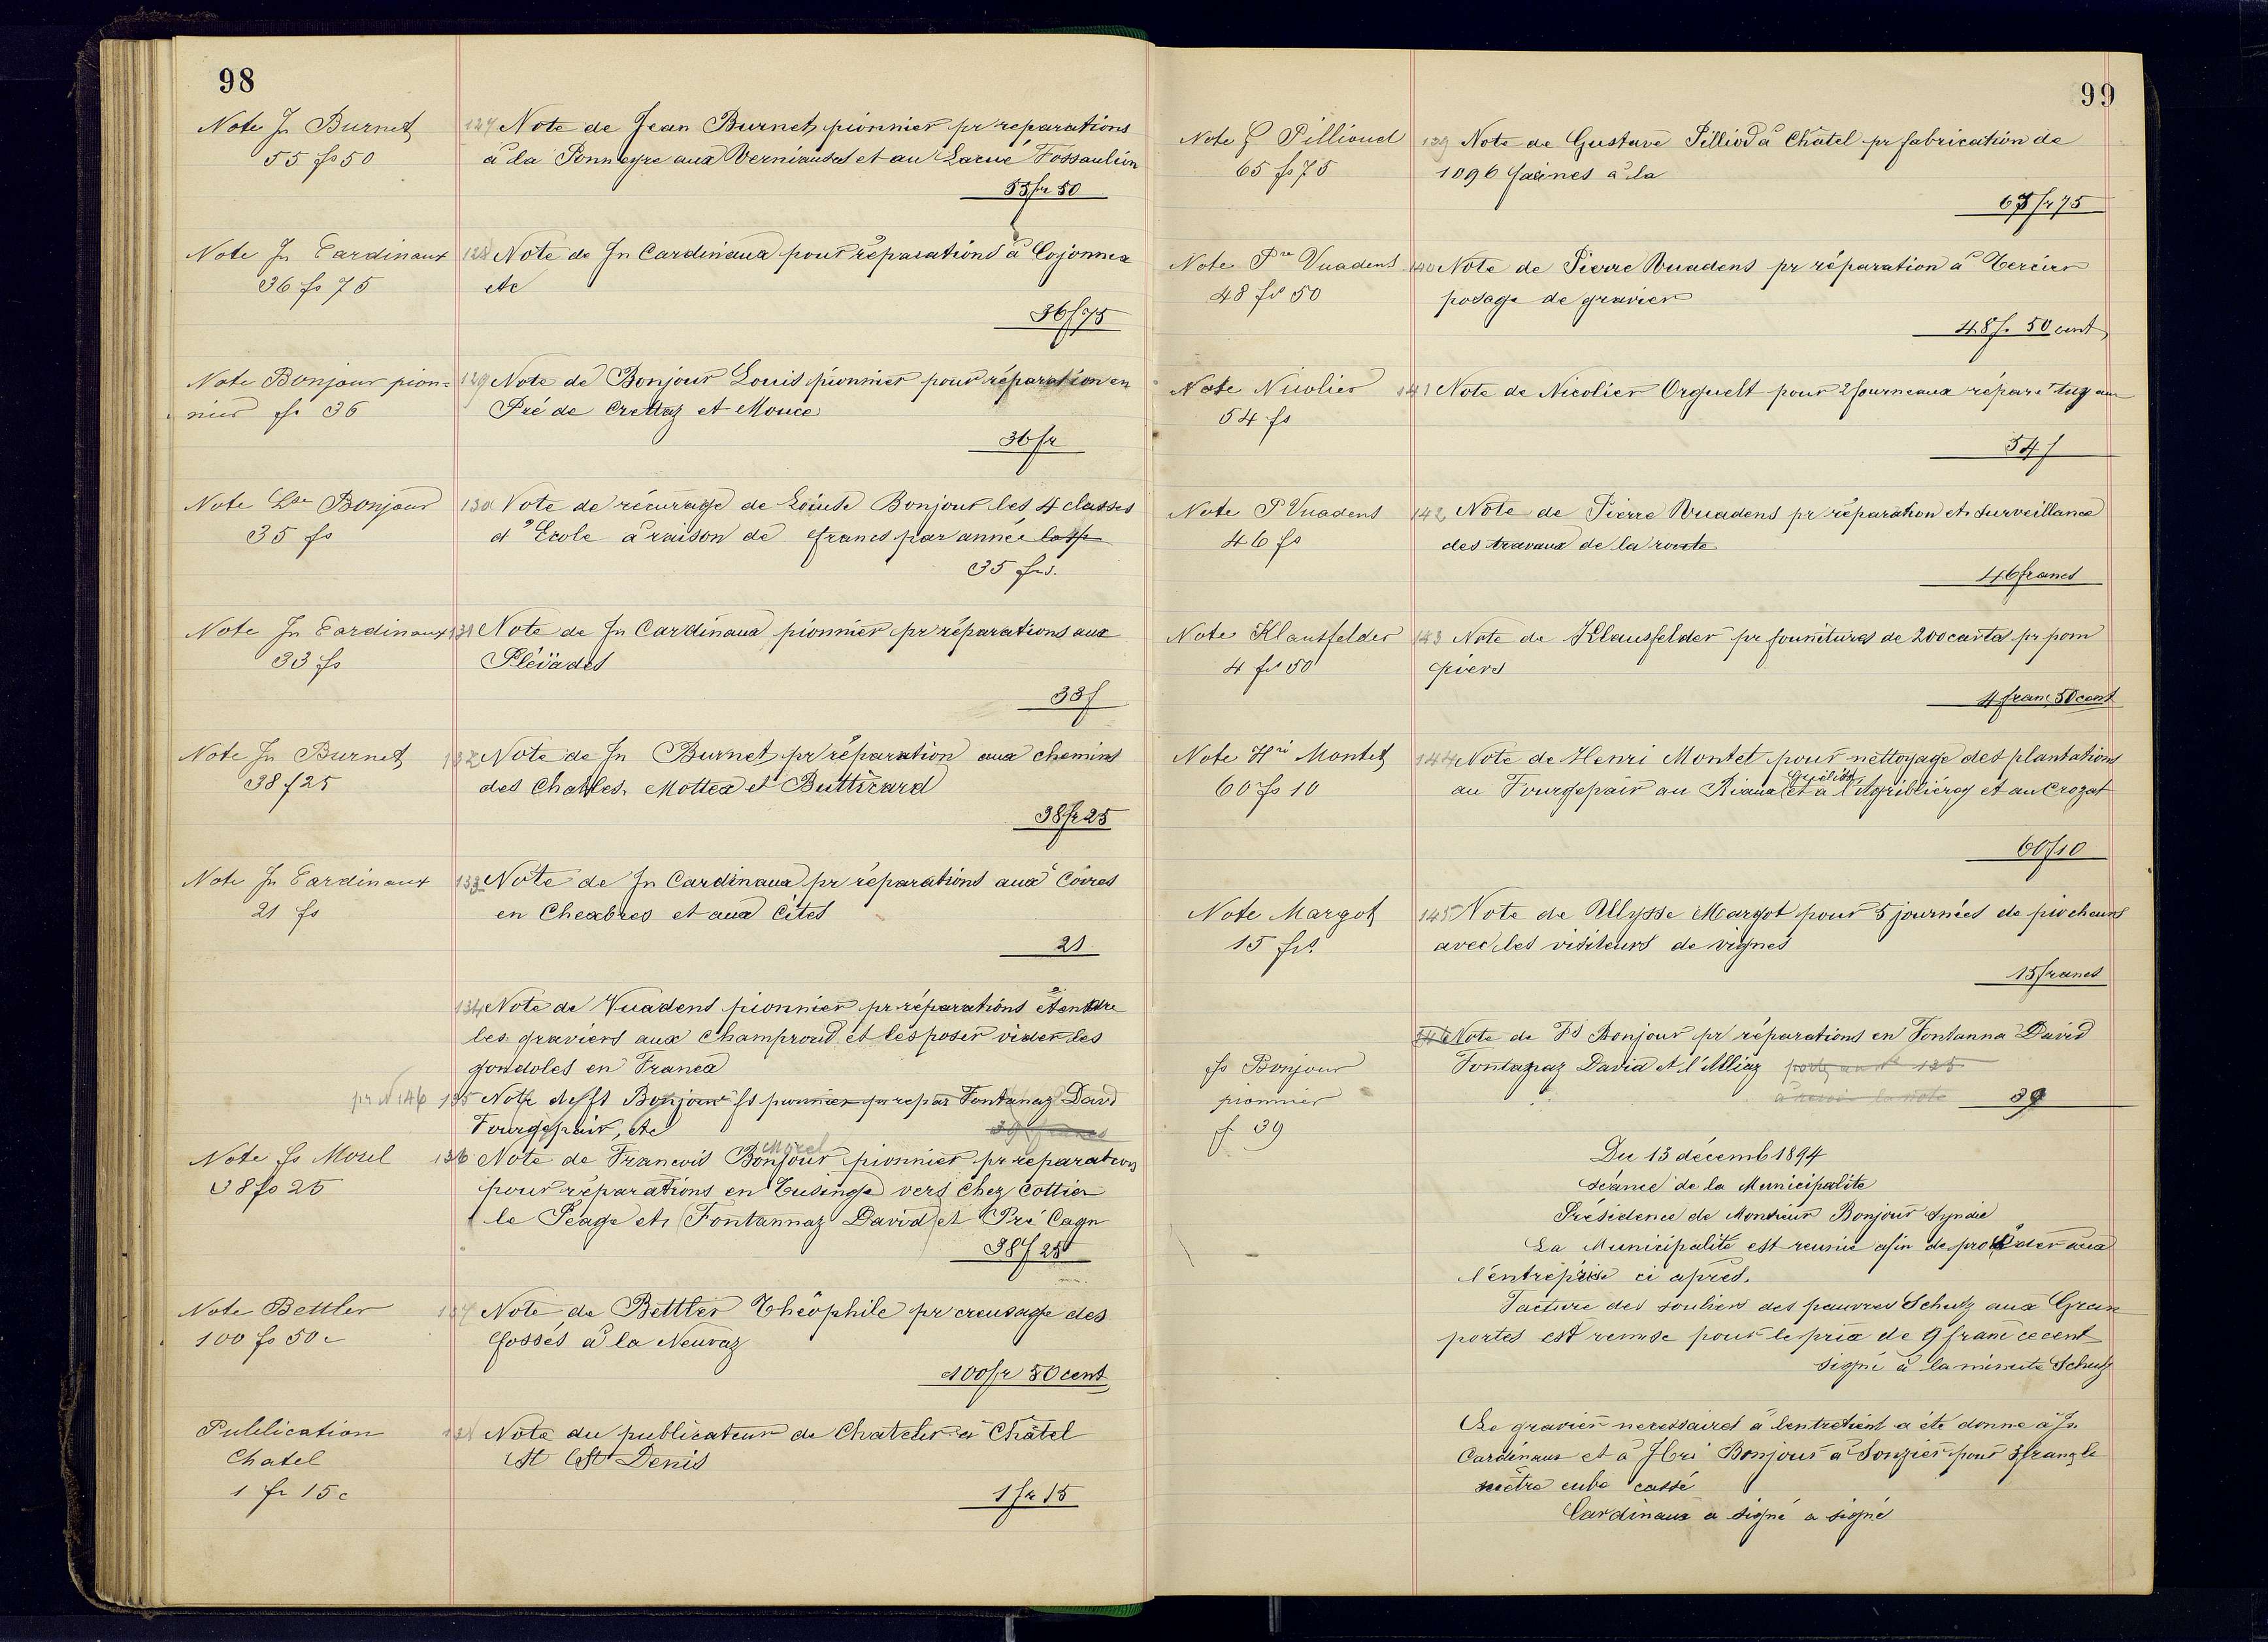 98
Note Jn Burnet
55 fs 50
127 Note de Jean Burnet pionnier pr reparations
à la Ponneyre aux Verniauses et au Fossaulion
55fr 50
Note Jn Cardinaux
36 fs 75
128 Note de Jn Cardinaux pour réparations à Cojonnex
etc
36f75
Note Bonjour pion=
nier fr 36
129 Note de Bonjour Louis pionnier pour réparation en
Pré de Crettaz et Mouce
36 fr
Note Lse Bonjour
35 fs
130 Note de récurage de Louise Bonjour les 4 classes
d'Ecole à raison de francs par année
35 frs.
Note Jn Cardinaux
33 fs
131 Note de Jn Cardinaux pionnier pr réparations aux
Pléïades
33f
Note Jn Burnet
38 f 25
132 Note de Jn Burnet pr réparation aux chemins
des Chables, Mottex et Butticard
38fr25
Note Jn Cardinaux
21 fs
133 Note de Jn Cardinaux pr réparations aux Coires
en Cheabres et aux Cites
21
134 Note de Vuadens pionnier pr réparations
les graviers aux Champroud et les poser vider les
gondoles en Franca
pr N 146
135 Note Bonjour fs pionnier pr repar Fontanaz Davd
Fourgepair, etc
39 francs
Note Fs Morel
38 fs 25
136 Note de Francois Bonjour Morel pionnier pr reparation
pour réparations en Tusinge vers Chez Cottier
le Péage etc Fontannaz David et Pré Cagn
38f 25
Note Bettler
100 fs 50 c
137 Note de Bettler Théophile pr creusage des
fossés à la Neuvaz
100fr 50 cent
Publication
Chatel
1 fr 15 c
138 Note du publicateur de Chatel à Châtel
St Denis
1 fr 15
99
Note G Pillioud
65 fs 75
139 Note de Gustave Pilliod à Châtel pr fabrication de
1096 à la
65fr75
Note Pre Vuadens
48 fs 50
140 Note de Pierre Vuadens pr réparation à Tercier
posage de gravier
48 f. 50 cent
Note Nicolier
54 fs
141 Note de Nicolier Orguelt pour 2 fourneaux réparé
54 f
Note P Vuadens
46 fs
142 Note de Pierre Vuadens pr réparation et surveillance
des travaux de la route
46 francs
Note Klausfelder
4 fs 50
143 Note de Klausfelder pr fournitures de 200 cartes pr pom
piers
4 franc 50 cent
Note Hri Montet
60 fs 10
144 Note de Henri Montet pour nettoyage des plantations
au Fourgepair au Riaux et à l'Agribliéroz et au Crozat
60f10
Note Margot
15 frs
145 Note de Ullysse Margot pour 5 journées de piocheurs
avec les visiteurs de vignes
15 francs
fs Bonjour
pionnier
f 39
146 Note de Fs Bonjour pr réparations en Fontanna David
Fontanaz David et l'Alliaz porté au No 135
la note
39
Du 13 décemb 1894
séance de la Municipalite
Présidence de Monsieur Bonjour Syndic
La Municipalité est reunie afin de procéder aux
l'entréprise ci après.
Facture des souliers des pauvres Schutz aux Gran
portes est remise pour le prix de 9 franc
signé à la minute Schutz
Le gravier necessaires à l'entretient a été donne à Jn
Cardinaux et à Hri Bonjour à Sonzier pour 3 franc le
mètre cube cassé
Cardinaux a signé a signé